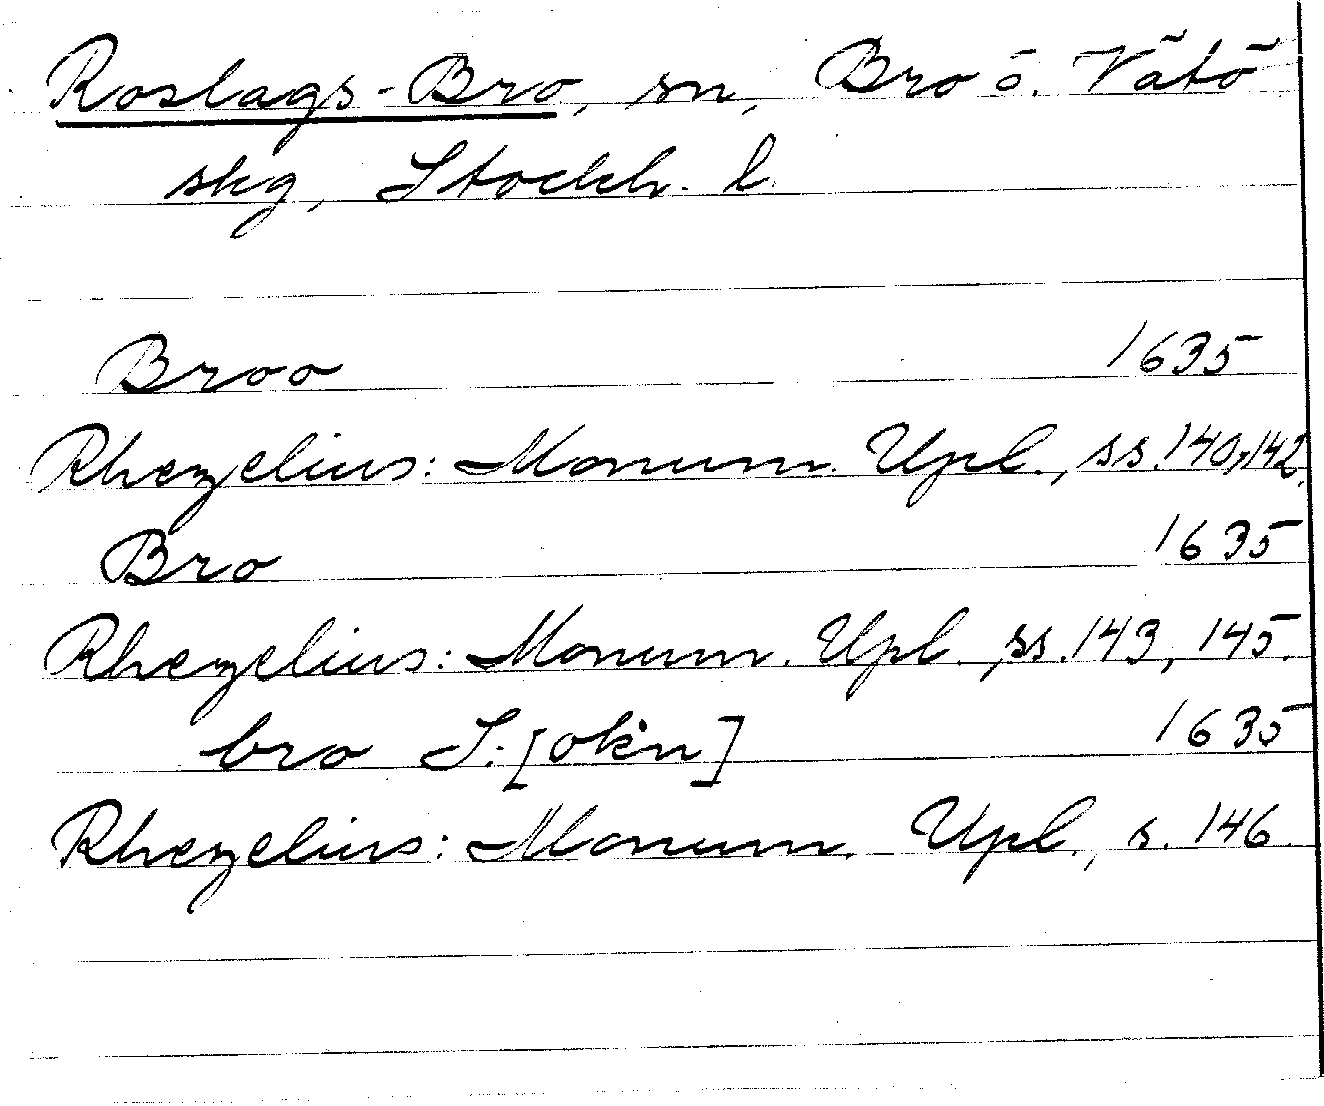 Roslags-Bro, sn, Bro o. Vätö
skg, Stockh. l.
Broo 1635
Rhezelius: Monum. Upl., ss. 140, 142.
Bro 1635
Rhezelius: Monum. Upl., ss. 143, 145.
bro S:[okn] 1635
Rhezelius: Monum. Upl., s. 146.